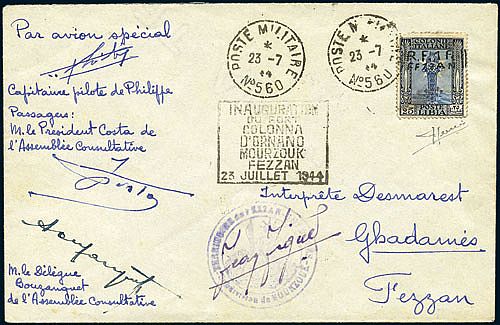 Par avion spécial
Capitaine pilote de Philippe
Passagers:
M. le President Costa de
l'Assemblée Consultative
M. le Délégué
Bouzanquet
de l'Assemblée Consultative
POSTE MILITAIRE
*
23 -7
44
No 560
POSTE MILITAIRE
*
23 -7
44
No 560
R.F.
FEZZAN
POSTE
LIBIA
INAUGURATION
DU FORT
COLONNA
D'ORNANO
MOURZOUK
FEZZAN
23 JUILLET 1944
Interprète Desmarest
Ghadamès
Fezzan
TERRITOIRE du FEZZAN
Subdivision de MOURZOUK